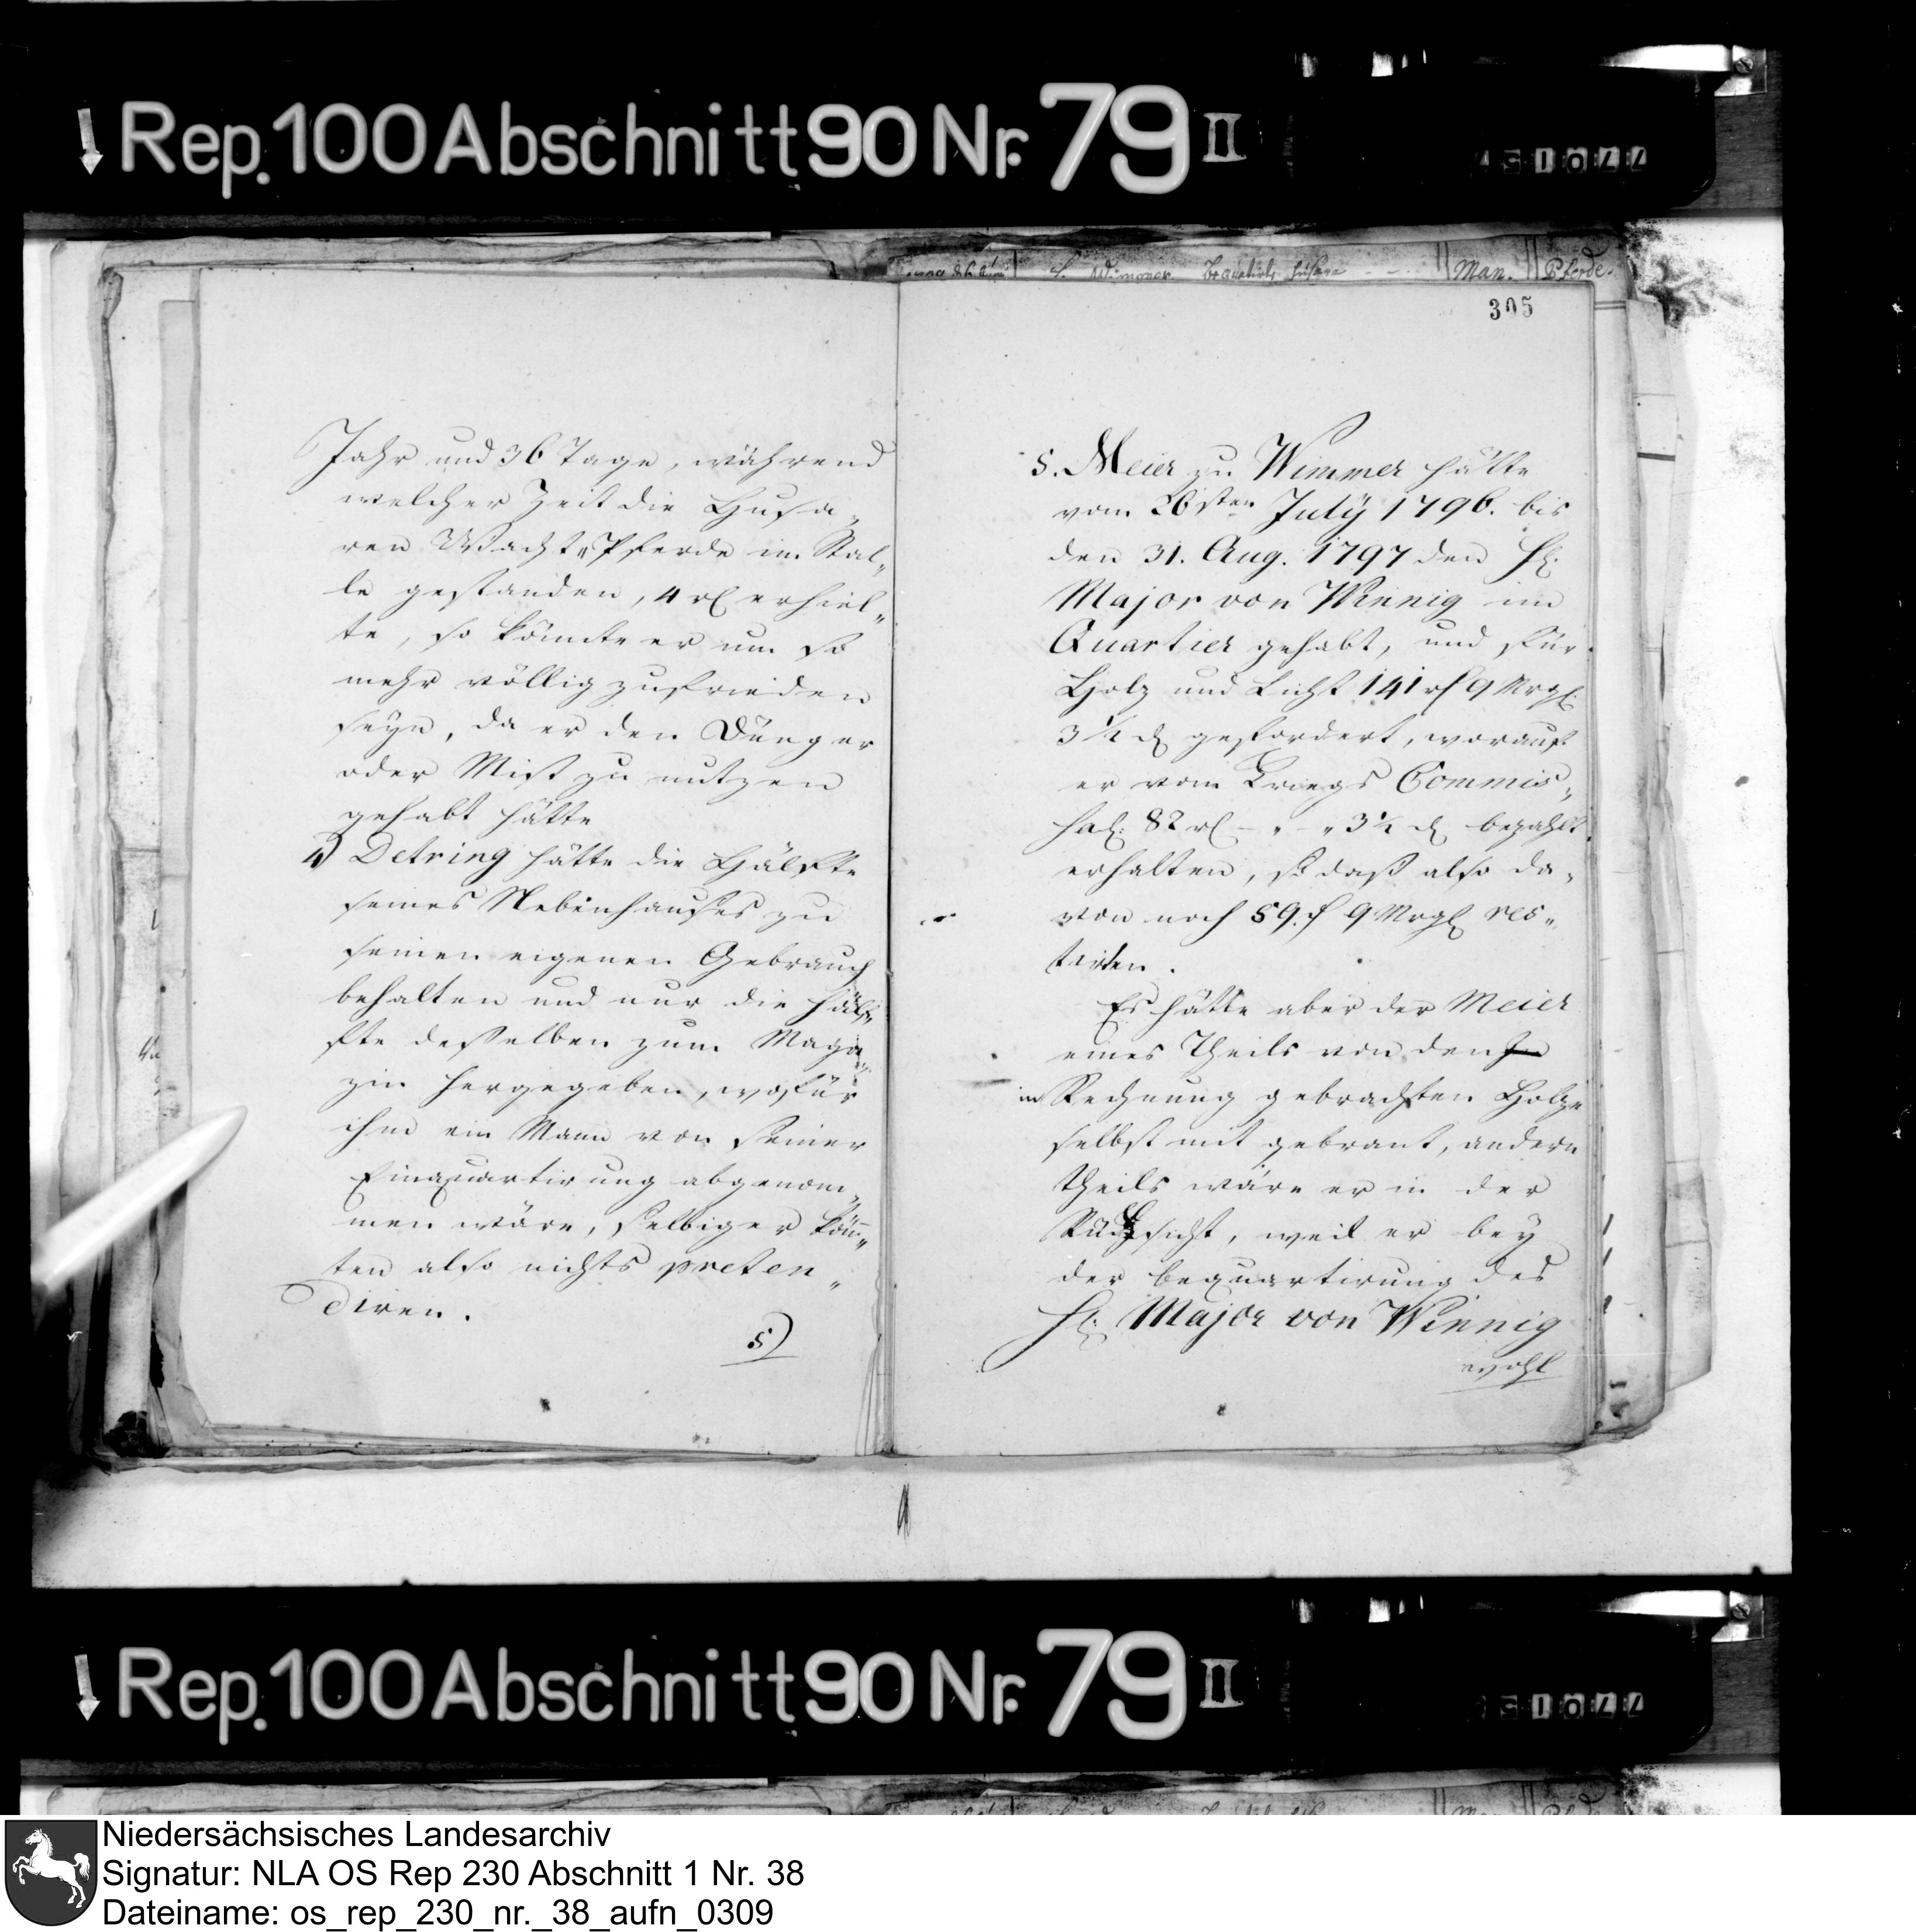 Rep. 100 Abschnitt 90 Nr. 79 II
Man. Pferde.
305
Jahr und 36 Tage, während
welcher Zeit die Husa„
ren Wacht„Pferde im Stal„
le gestanden, 4 rl erhiel„
te, so könnte er um so
mehr völlig zufrieden
seyn, da er den Dünger
oder Mist zu nutzen
gehabt hätte
4) Detring hätte die Hälfte
seines Nebenhauses zu
seinen eigenen Gebrauch
behalten und nur die Hälf„
fte desselben zum Maga„
zin hergegeben, wofür
ihm ein Mann von seiner
Einquartirung abgenom„
men wäre, selbiger kön„
ten also nichts preten„
diren.
5)
5. Meier zu Wimmer hätte
vom 26sten July 1796. bis
den 31. Aug. 1797 den H.
Major von Winnig im
Quartier gehabt, und für
Holz und Licht 141 rl 9 Mrgl
3½ d gefordert, worauf
er vom Kriegs Commis„
har. 82 rl - „ - „ 3½ d bezahlt
erhalten, so daß also da„
von noch 59. rl 9 Mrgl res„
tirten.
Es hätte aber der Meier
eines Theils von den
in Rechnung gebrachten Holze
selbst mit gebrant, andern
theils wäre er in der
Rücksicht, weil er bey
der bequartirung des
H. Major von Winnig
wohl
Rep. 100 Abschnitt 90 Nr. 79 II
Niedersächsisches Landesarchiv
Signatur: NLA OS Rep 230 Abschnitt 1 Nr. 38
Dateiname: os_rep_230_nr._38_aufn_0309